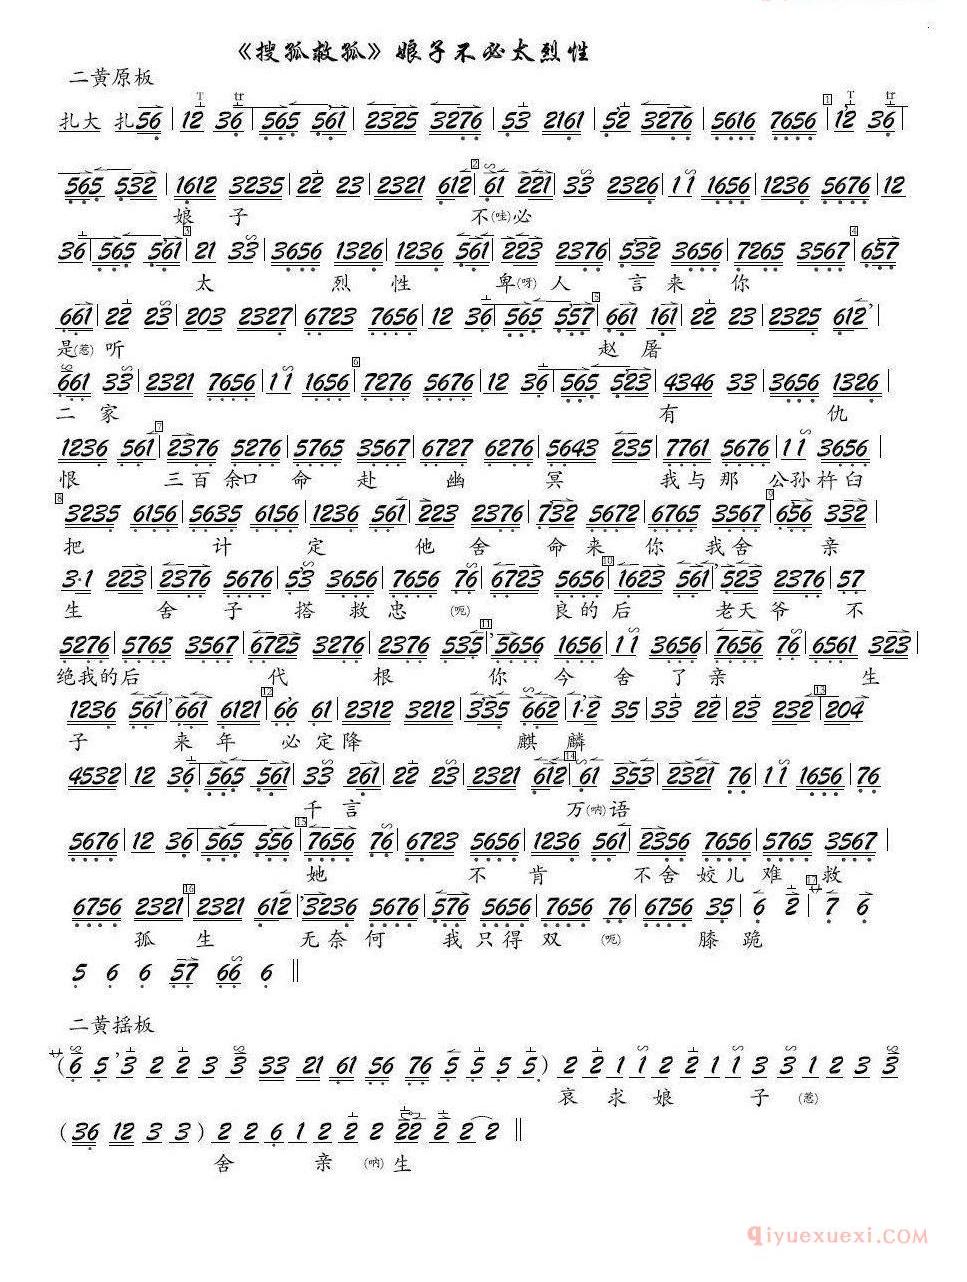 《搜孤救孤》娘子不必太烈性
二黄原板
扎大 扎56 | 12 36 | 565 561 | 2325 3276 | 53 2161 | 52 3276 | 5616 7656 | 12 36 |
565 532 | 1612 3235 | 22 23 | 2321 612 | 61 221 | 33 2326 | 11 1656 | 1236 5676 | 12
娘 子 不(哇)必
36 | 565 561 | 21 33 | 3656 1326 | 1236 561 | 223 2376 | 532 3656 | 7265 3567 | 657
太 烈 性 卑(呀)人 言 来 你
661 | 22 23 | 203 2327 | 6723 7656 | 12 36 | 565 557 | 661 161 | 22 23 | 2325 612 |
是(惹)听 赵 屠
661 33 | 2321 7656 | 11 1656 | 7276 5676 | 12 36 | 565 523 | 4346 33 | 3656 1326 |
二 家 有 仇
1236 561 | 2376 5276 | 5765 3567 | 6727 6276 | 5643 235 | 7761 5676 | 11 3656 |
恨 三百余口 命 赴 幽 冥 我与那 公孙杵臼
3235 6156 | 5635 6156 | 1236 561 | 223 2376 | 732 5672 | 6765 3567 | 656 332 |
把 计 定 他 舍 命 来 你 我 舍 亲
3·1 223 | 2376 5676 | 53 3656 | 7656 76 | 6723 5656 | 1623 561 | 523 2376 | 57
生 舍 子 搭 救 忠 (呃) 良的后 老天爷 不
5276 | 5765 3567 | 6725 3276 | 2376 535 | 5656 1656 | 11 3656 | 7656 76 | 6561 323 |
绝我的后 代 根 你 今 舍 了 亲 生
1236 561 | 661 6121 | 66 61 | 2312 3212 | 335 662 | 1·2 35 | 33 22 | 23 232 | 204
子 来 年 必 定 降 麒 麟
4532 | 12 36 | 565 561 | 33 261 | 22 23 | 2321 612 | 61 353 | 2321 76 | 11 1656 | 76
千 言 万(呐)语
5676 | 12 36 | 565 556 | 7656 76 | 6723 5656 | 1236 561 | 2356 7656 | 5765 3567 |
她 不 肯 不舍 姣儿 难 救
6756 2321 | 2321 612 | 3236 5676 | 576 5656 | 7656 76 | 6756 35 | 6 2 | 7 6
孤 生 无奈何 我只得双 (呃) 膝 跪
5 6 6 57 66 6 ‖
二黄摇板
(6 5 3 2 2 3 3 33 21 61 56 76 5 5 5 5) 2 2 1 1 2 2 1 1 3 3 1 2 3 3
哀 求 娘 子 (惹)
(36 12 3 3) 2 2 6 1 2 2 2 22 2 2 2 ‖
舍 亲 (呐)生
qiyuexuexi.COM